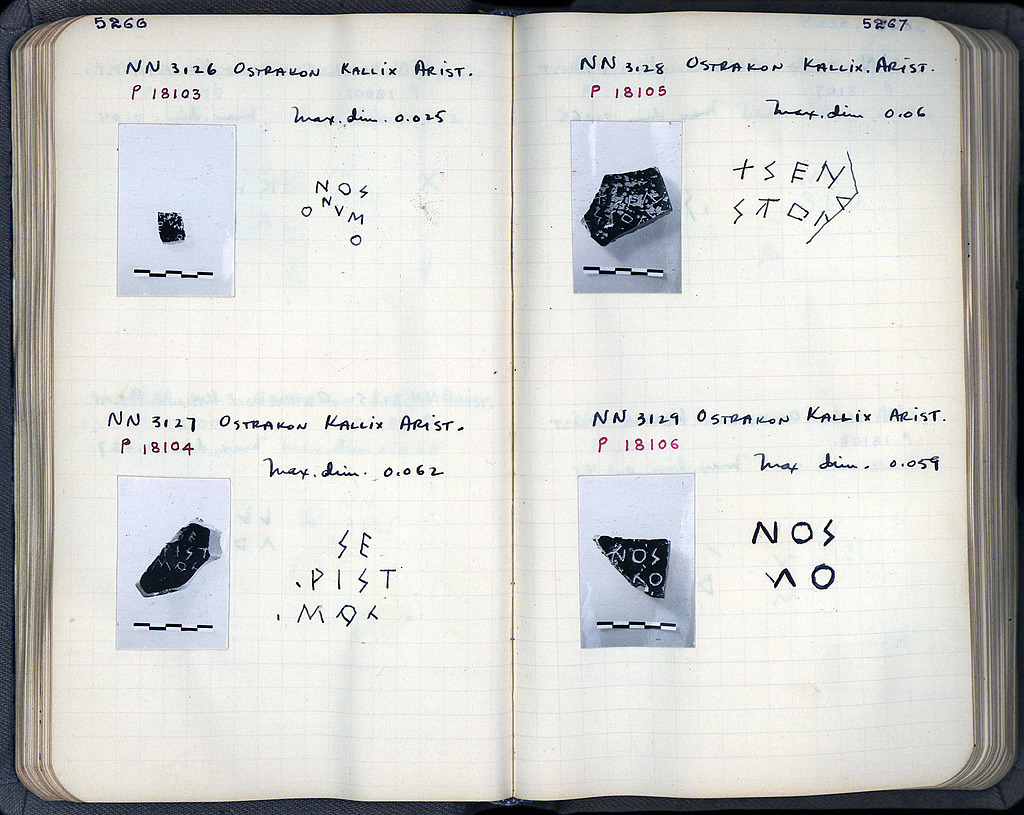 5266
NN 3126 OSTRAKON KALLIX ARIST.
P 18103
Max. dim. 0.025
NOS
ONVM
O
NN 3127 OSTRAKON KALLIX ARIST.
P 18104
Max. dim. 0.062
SE
.PIST
.MO
5267
NN 3128 OSTRAKON KALLIX. ARIST.
P 18105
Max. dim 0.06
+SEN
STOD
NN 3129 OSTRAKON KALLIX ARIST.
P 18106
Max dim. 0.059
NOS
ΛO